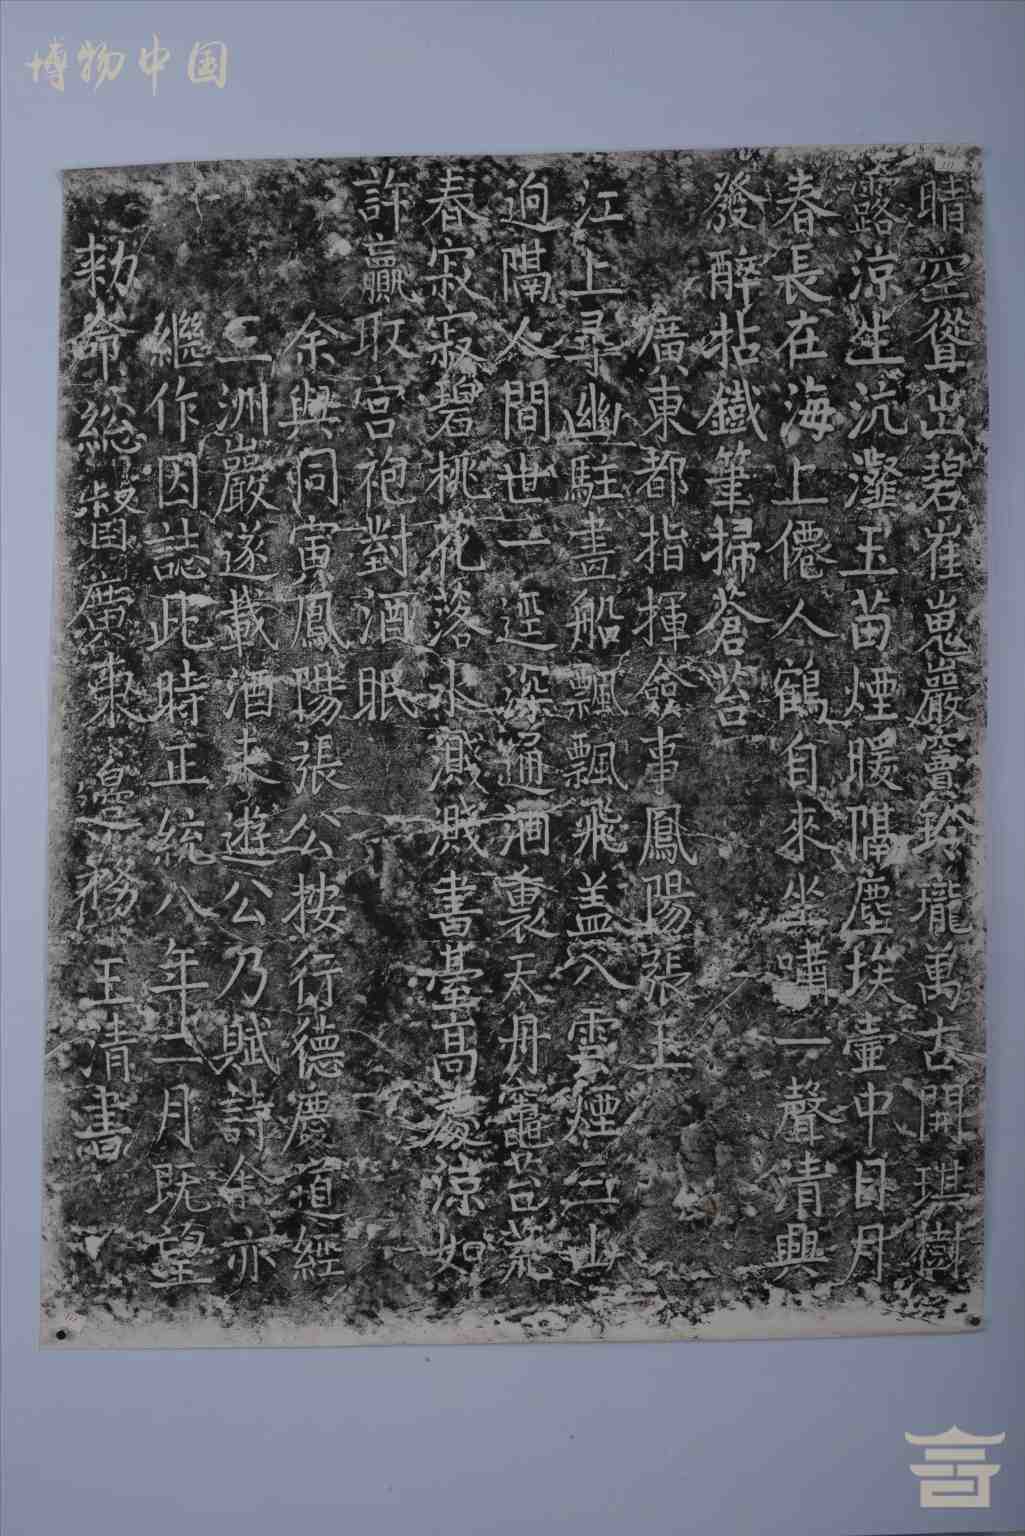 博物中国
晴空聳出碧崔嵬巖竇玲瓏萬古開琪樹
露涼生沆瀣玉苗煙暖隔塵埃壷中日月
春長在海上僊人鶴自來坐嘯一聲清興
發醉拈鐵筆掃蒼苔
廣東都指揮僉事鳳陽張玉
江上尋幽駐畫船飄飄飛盖入雲煙三山
逈隔人間世一逕深通洞裏天丹竈苔荒
春寂寂碧桃花落水濺濺書臺高處涼如
許贏取宮袍對酒眠
余與同寅鳳陽張公按行德慶道經
三洲巖遂載酒来遊公乃賦詩余亦
継作因誌此時正統八年二月既望
勑命總督廣東邊務王清書